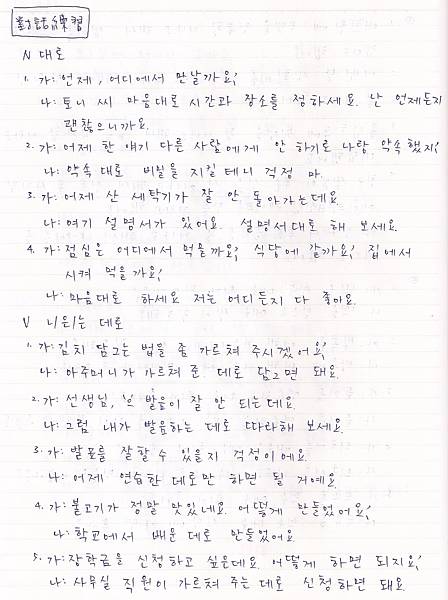 對話練習
N 대로
1. 가: 언제, 어디에서 만날까요?
나: 토니 씨 마음대로 시간과 장소를 정하세요. 난 언제든지
괜찮으니까요.
2. 가: 어제 한 얘기 다른 사람에게 안 하기로 나랑 약속했지?
나: 약속 대로 비밀을 지킬 테니 걱정 마.
3. 가: 어제 산 세탁기가 잘 안 돌아가는데요.
나: 여기 설명서가 있어요. 설명서대로 해 보세요.
4. 가: 점심은 어디에서 먹을까요? 식당에 갈까요? 집에서
시켜 먹을까요?
나: 마음대로 하세요 저는 어디든지 다 좋아요.
V 니은|는 데로
1. 가: 김치 담그는 법을 좀 가르쳐 주시겠어요?
나: 아주머니가 가르쳐 준 데로 담그면 돼요.
2. 가: 선생님, '의' 발음이 잘 안 되는데요.
나: 그럼 내가 발음하는 데로 따라해 보세요.
3. 가: 발표를 잘 할 수 있을지 걱정이에요.
나: 어제 연습한 데로만 하면 될 거예요.
4. 가: 불고기가 정말 맛있네요. 어떻게 만들었어요?
나: 학교에서 배운 데로 만들었어요.
5. 가: 장학금을 신청하고 싶은데요 어떻게 하면 되지요?
나: 사무실 직원이 가르쳐 주는 데로 신청하면 돼요.